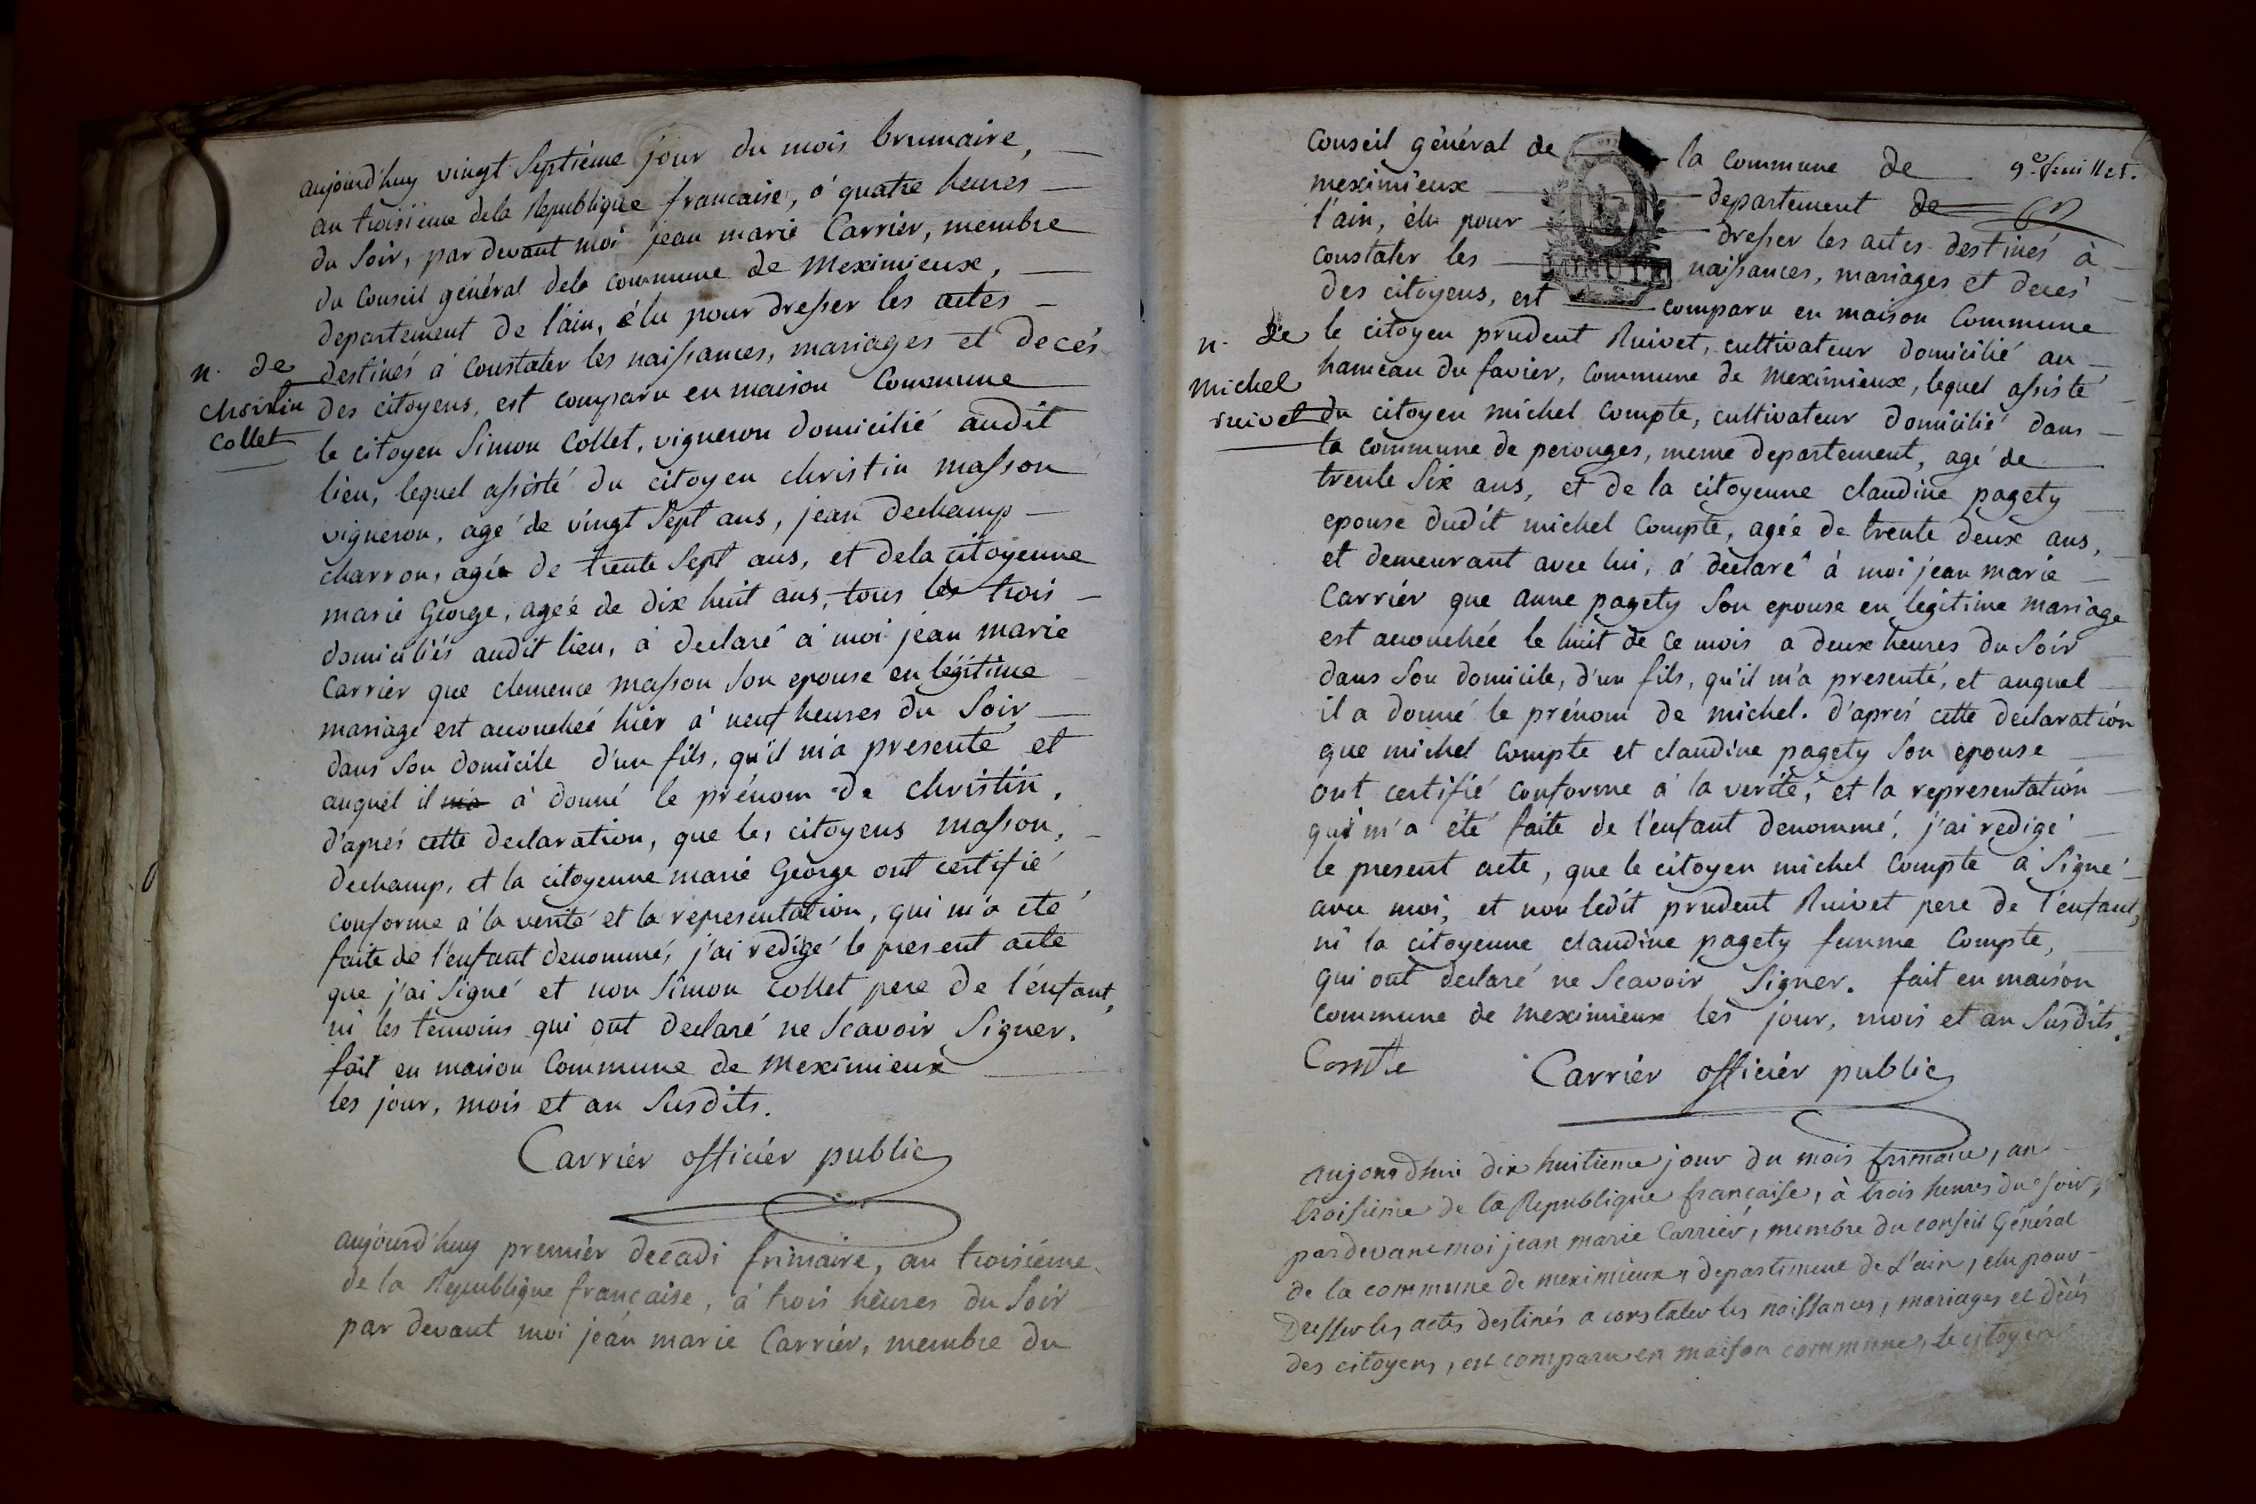 aujourd'huy vingt Septiéme jour du mois brumaire,
an troisieme dela Republique francaise, á quatre heures
du Soir, par devant moi jean marie Carrier, membre
du Conseil général dela commune de Meximieux,
departement de l'ain, élu pour dresser les actes
destinés á Constater les naissances, mariages et decés
n. de
christin
collet
des citoyens, est comparu en maison Commune
le citoyen Simon Collet, vigneron domicilié audit
lieu, lequel assisté du citoyen christin masson
vigneron, agé de vingt Sept ans, jean dechamp
charron, agée de trente Sept ans, et dela citoyenne
marie George, ageé de dix huit ans, tous les trois
domiciliés audit lieu, á declaré á moi jean marie
Carrier que clemence masson Son epouse en légitime
mariage est accoucheé hier á neuf heures du Soir
dans Son domicile d'un fils, qu'il m'a presenté et
auquel il m'a á donné le prénom de christin,
d'aprés cette declaration, que les citoyens masson,
dechamp, et la citoyenne marie George ont certifié
conforme á la verité et la representation, qui m'a eté
faite de l'enfant denommé, j'ai redigé le present acte
que j'ai Signé et non Simon Collet pere de l'enfant,
ni les temoins qui ont declaré ne Scavoir Signer.
fait en maison Commune de Meximieux
les jour, mois et an Susdits.
Carrier officiér public
aujourd'huy premiér decadi frimaire, an troisiéme
de la Republique française, á trois heures du Soir
par devant moi jean marie Carrier, membre du
9e feuillet.
Conseil général de la commune de
meximieux departement de
l'ain, élu pour dresser les actes destinés à
constater les naissances, mariages et decés
MINUTE
des citoyens, est comparu en maison Commune
n. de
michel
ruivet
le citoyen prudent Ruivet, cultivateur domicilié au
hameau du favier, Commune de Meximieux, lequel assisté
du citoyen michel Compte, cultivateur domicilié dans
la commune de perouges, meme departement, agé de
trente Six ans, et de la citoyenne claudine pagety
epouse dudit michel Compte, agée de trente deux ans,
et demeurant avec lui, á declaré à moi jean marie
Carriér que anne pagety Son epouse en légitime mariage
est accouchée le huit de ce mois a deux heures du Soir
dans Son domicile, d'un fils, qu'il m'a presenté, et auquel
il a donné le prénom de michel. d'aprés cette declaration
que michel Compte et claudine pagety Son epouse
ont certifié conforme á la verité, et la representation
qui m'a été faite de l'enfant denommé, j'ai redigé
le present acte, que le citoyen michel Compte a Signé
avec moi, et non ledit prudent Ruivet pere de l'enfant,
ni la citoyenne claudine pagety femme Compte,
qui ont declaré ne Scavoir Signer. fait en maison
commune de meximieux les jour, mois et an Susdits.
Comte Carriér officiér public
aujourdhui dix huitieme jour du mois frimaire, an
troisieme de la Republique française, à trois heures du soir,
pardevant moi jean marie Carrier, membre du conseil Général
de la commune de meximieux, departement de L'ain, elu pour
Dresser les actes destinés a constater les naissances, mariages et décés
des citoyens, est comparu en maison commune, le citoyen